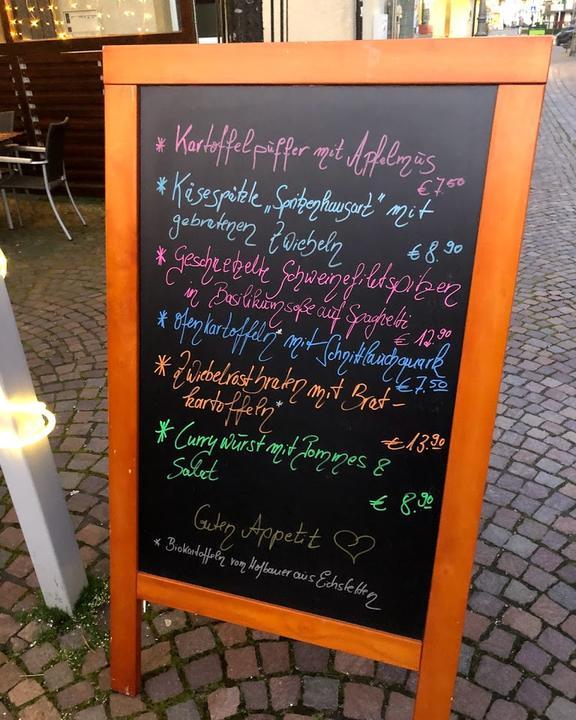 * Kartoffelpüffer mit Apfelmus
€ 7.50
* Käsespätzle „Spitzenhausart" mit
gebratenen Zwiebeln € 8.90
* Geschnetzelte Schweinefiletspitzen
in Basilikumsoße auf Spaghetti
€ 12.90
* Ofenkartoffeln* mit Schnittlauchquark
€ 7.50
* Zwiebelrostbraten mit Brat-
kartoffeln*
€ 13.90
* Currywurst mit Pommes &
Salat
€ 8.90
Guten Appetit ♡
* Biokartoffeln vom Hofbauer aus Eichstetten